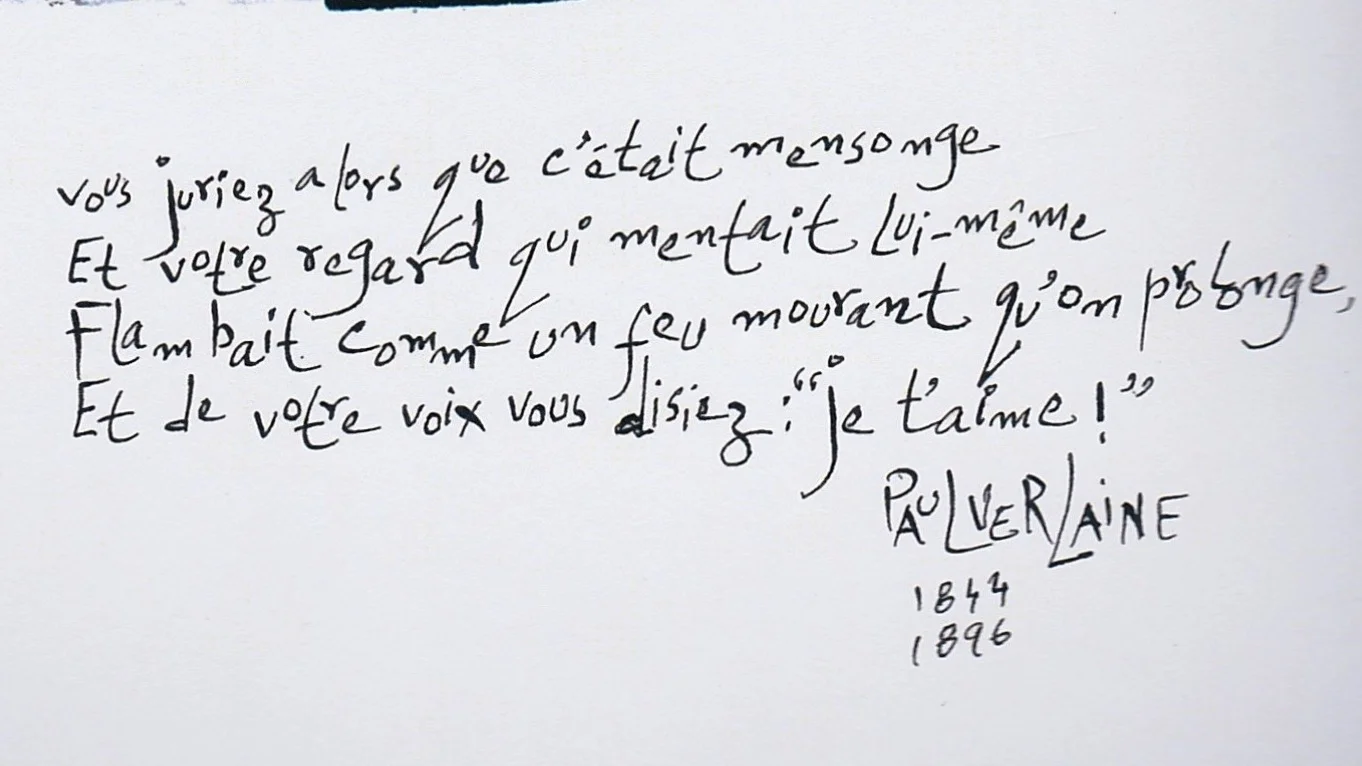 vous juriez alors que c'était mensonge
Et votre regard qui mentait lui-même
Flambait comme un feu mourant qu'on prolonge,
Et de votre voix vous disiez : "je t'aime ! "
PAUL VERLAINE
1844
1896